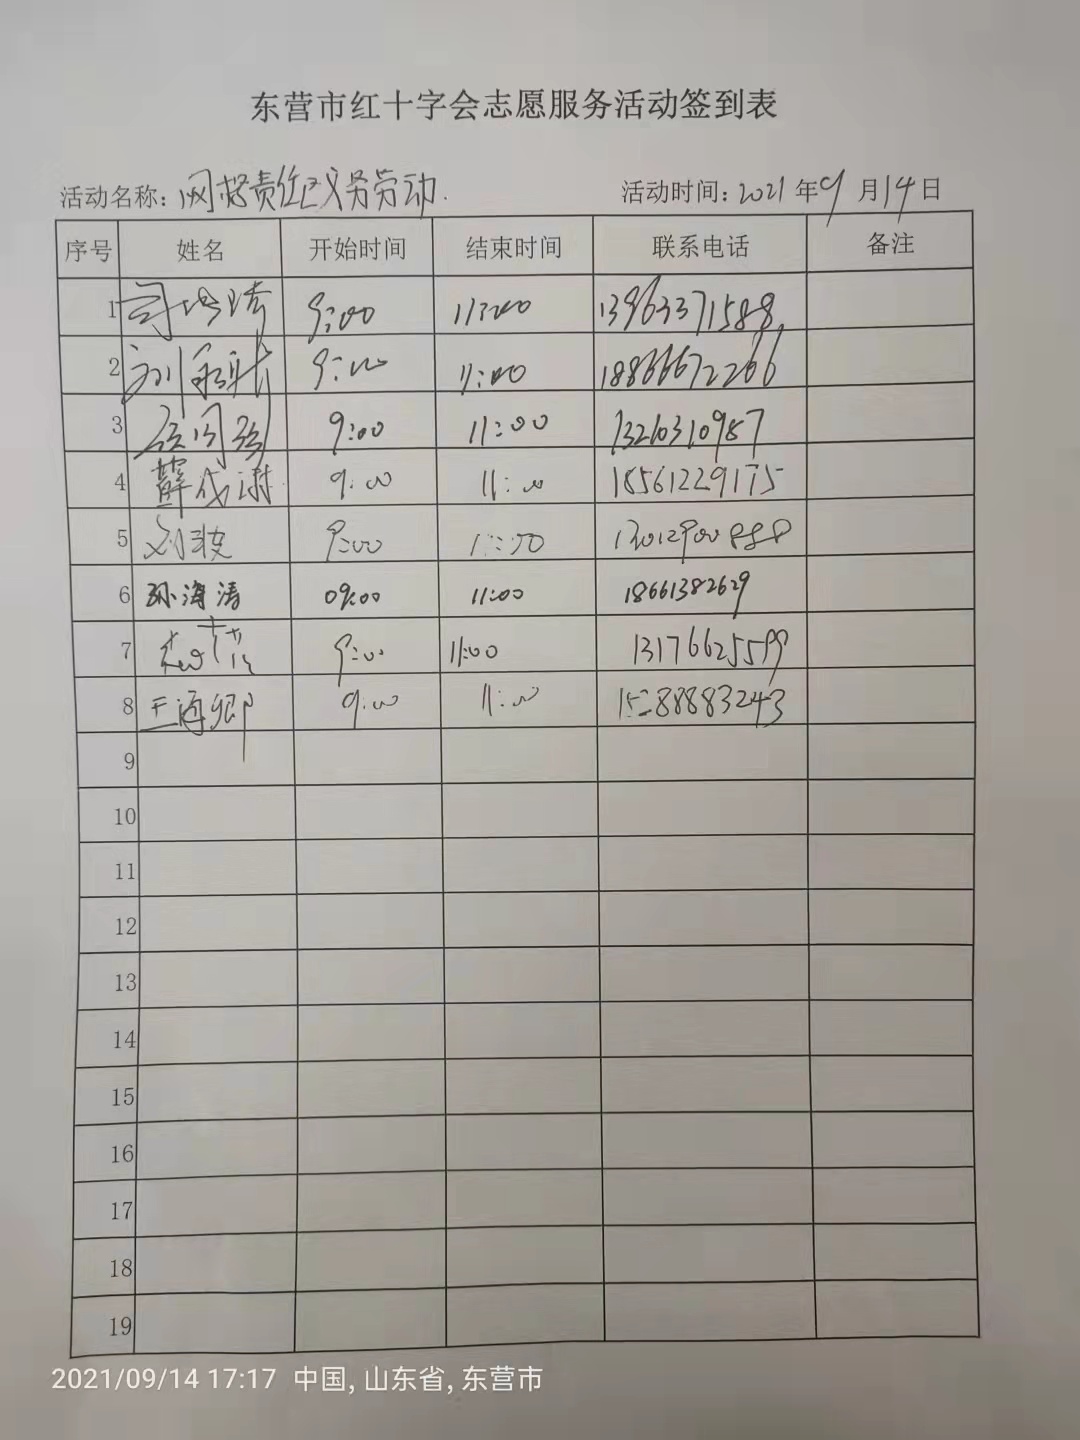 东营市红十字会志愿服务活动签到表
活动名称：网格责任区义务劳动. 活动时间：2021年9月14日
序号 姓名 开始时间 结束时间 联系电话 备注
1 9:00 11:00 13963371588
2 9:00 11:00 18866672266
3 9:00 11:00 13210310987
4 薛 9:00 11:00 18561229175
5 刘波 9:00 11:00 13012900888
6 孙海清 09:00 11:00 18661382629
7 9:00 11:00 13176625599
8 王海卿 9:00 11:00 15288883243
9
10
11
12
13
14
15
16
17
18
19
2021/09/14 17:17 中国, 山东省, 东营市